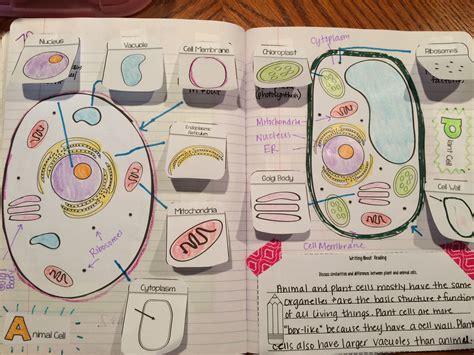 Nucleus
Vacuole
Cell Membrane
Endoplasmic
Reticulum
Mitochondria
Ribosomes
Cytoplasm
Body
Animal Cell
Chloroplast
(photosynthesis)
Cytoplasm
Ribosomes
Mitochondria
Nucleus
ER
Golgi Body
Plant Cell
Cell Wall
Cell Membrane
Writing About Reading
Discuss similarities and differences between plant and animal cells.
Animal and plant cells mostly have the same
Organelles + are the basic structure + function
of all living things. Plant cells are more
"box-like" because they have a cell wall. Plant
cells also have larger vacuoles than animal